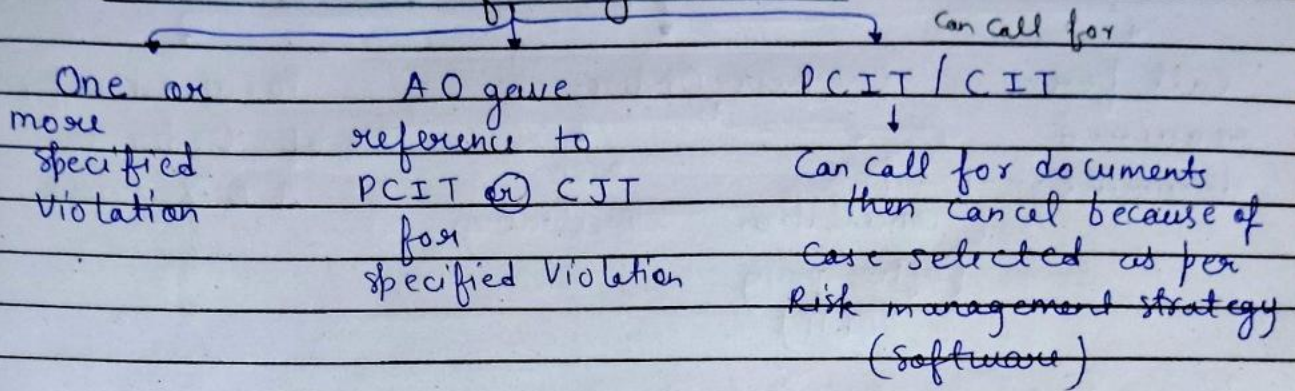 Can call for
One or
more
specified
Violation
A O gave
reference to
PCIT or CIT
for
specified Violation
PCIT / CIT
Can call for documents
then cancel because of
Case selected as per
Risk management strategy
(Software)